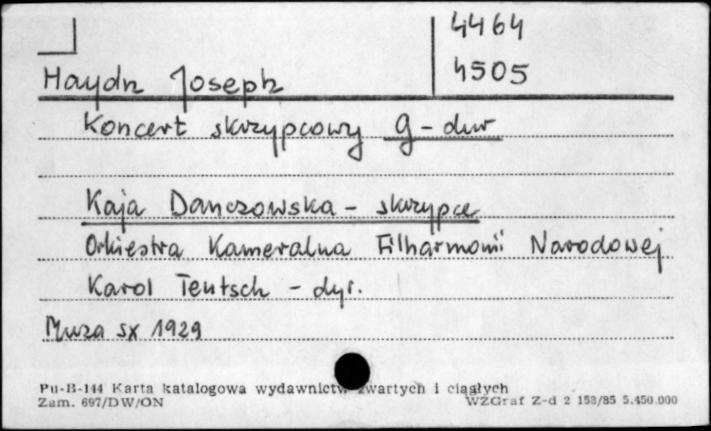 4464
4505
Haydn Joseph
Koncert skrzypcowy G-dur
Kaja Danczowska - skrzypce
Orkiestra Kameralna Filharmonii Narodowej
Karol Teutsch - dyr.
Muza SX 1929
Pu-B-144 Karta katalogowa wydawnictw zwartych i ciągłych
Zam. 697/DW/ON WZGraf Z-d 2 153/85 5.450.000